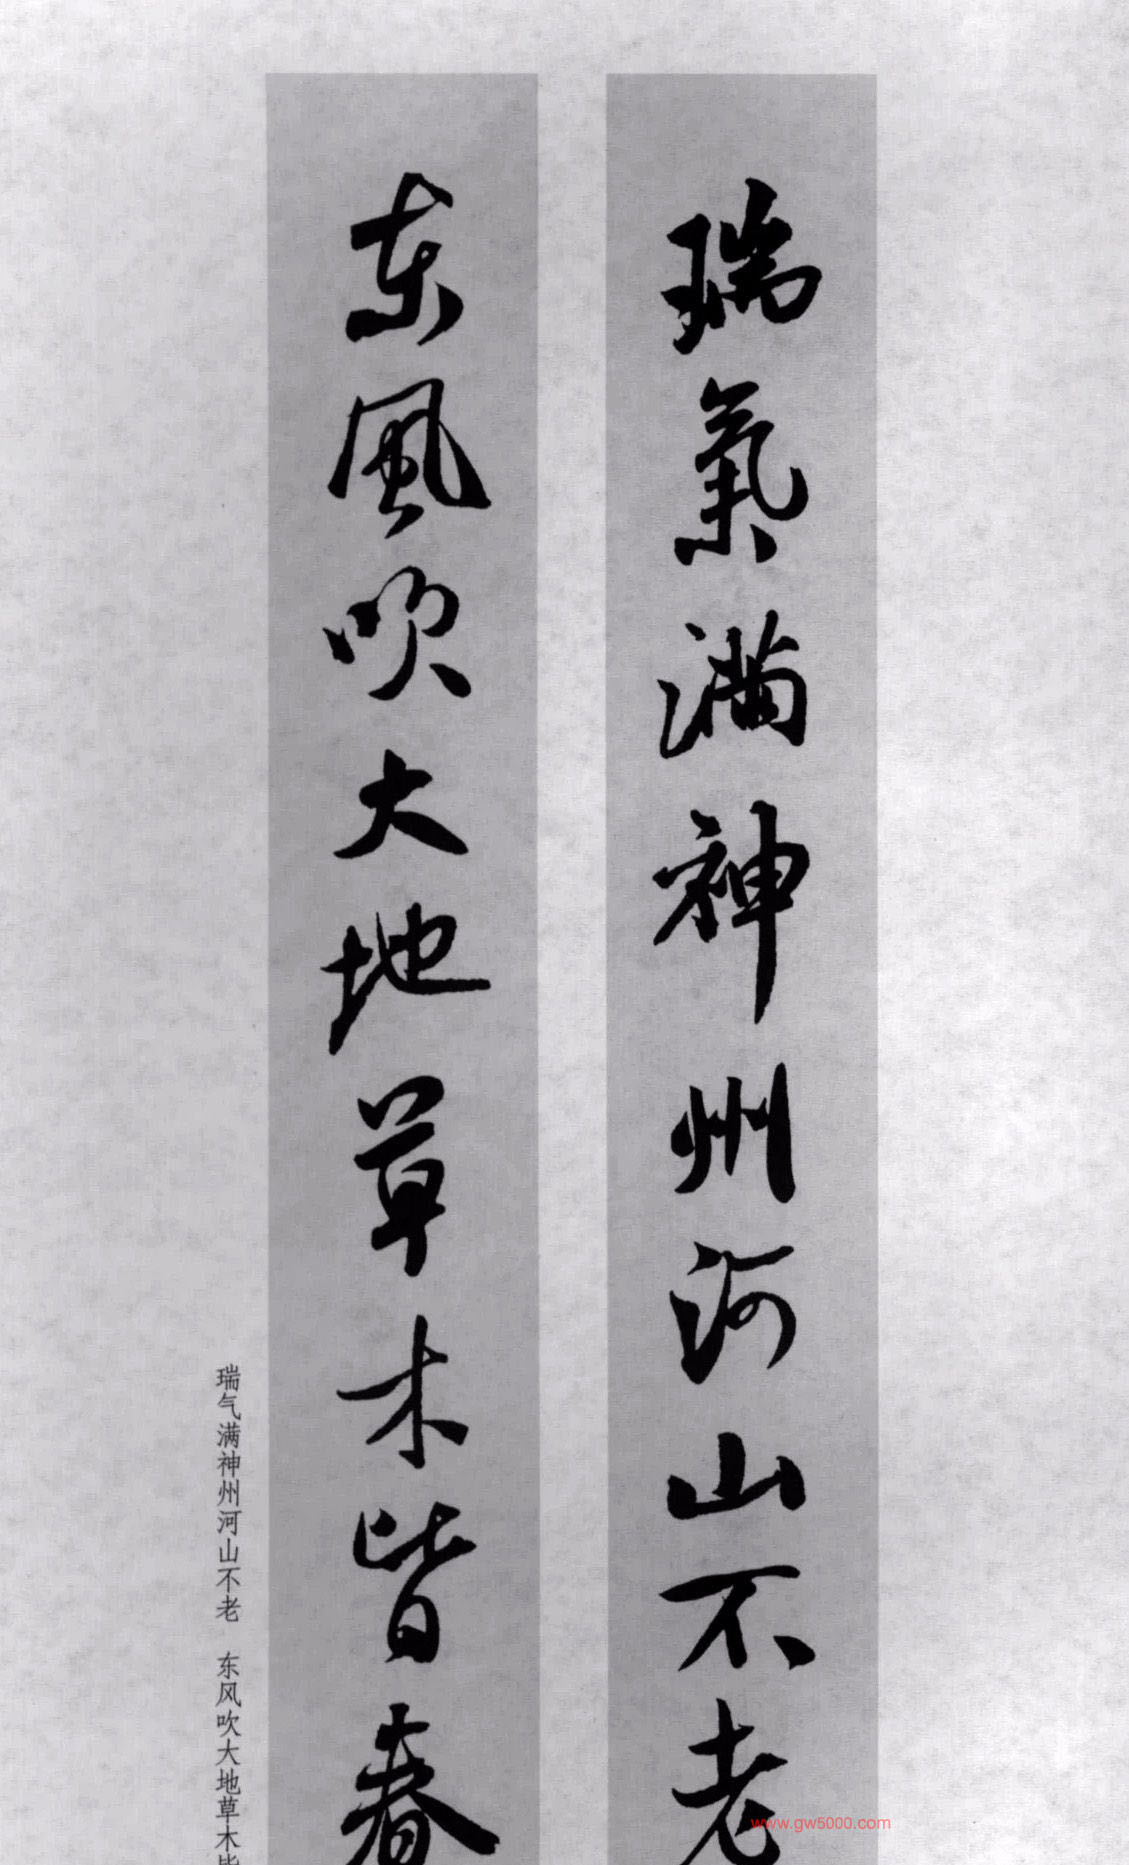 瑞氣满神州河山不老
东風吹大地草木皆春
瑞气满神州河山不老 东风吹大地草木皆
www.gw5000.com